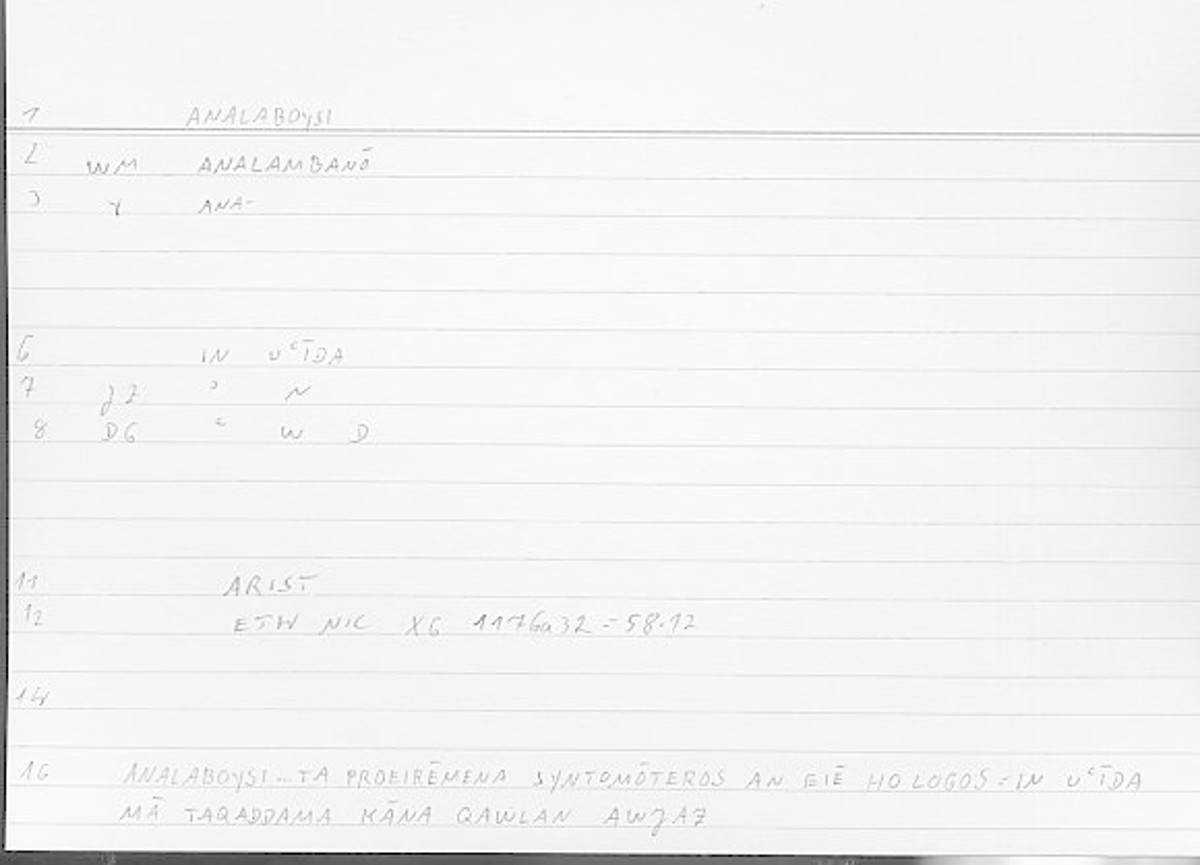 1 ANALABOYSI
2 WM ANALAMBANŌ
3 Y ANA-
6 IN UʿĪDA
7 ʾ N
8 DG ʿ W D
11 ARIST
12 NIC X6 1176a32 = 58.12
14
16 ANALABOYSI...TA PROEIRĒMENA SYNTOMŌTEROS AN EIĒ HO LOGOS = IN UʿĪDA
MĀ TAQADDAMA KĀNA QAWLAN AWJAZ